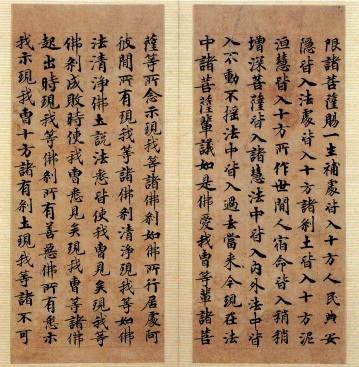 限諸菩薩賜一生補處皆入十方人民典安
隱皆入法處皆入十方諸剎土皆入十方泥
洹慧皆入十方所作世間人宿命皆入稍稍
增深菩薩皆入諸慧法中皆入內外法中皆
入不動不搖法中皆入過去當來今現在法
中諸菩薩輩議如是佛愛我曹等輩諸菩
薩等所念示現我等諸佛剎如佛所行居處何
彼間所有現我等諸佛剎清淨現我等如佛
法清淨佛土說法悉皆使我曹見矣現我等
佛剎成敗時使我曹悉見矣現我曹等諸佛
起出時現我曹所有善惡佛所有悉示
我示現我曹十方諸有剎土現我等諸不可